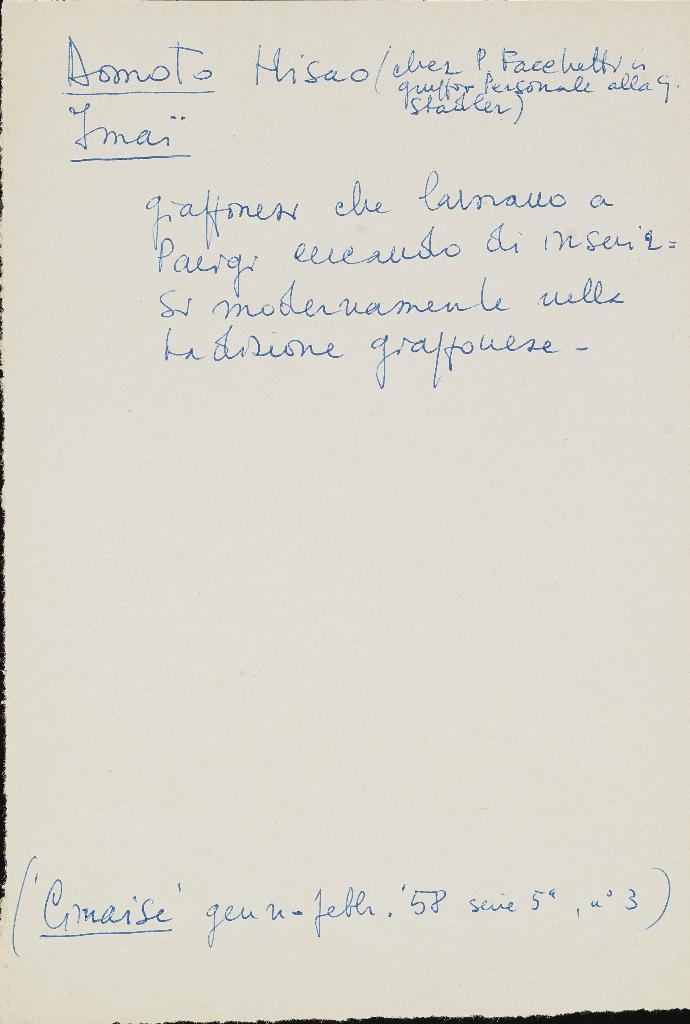 Domoto Hisao (chez P. Facchetti in
gruppo Personale alla G.
Stadler)
Imaï
giapponesi che lavorano a
Parigi cercando di inserir=
si modernamente nella
tradizione giapponese -
('Cimaise' genn-febbr. '58 serie 5ª, n° 3)